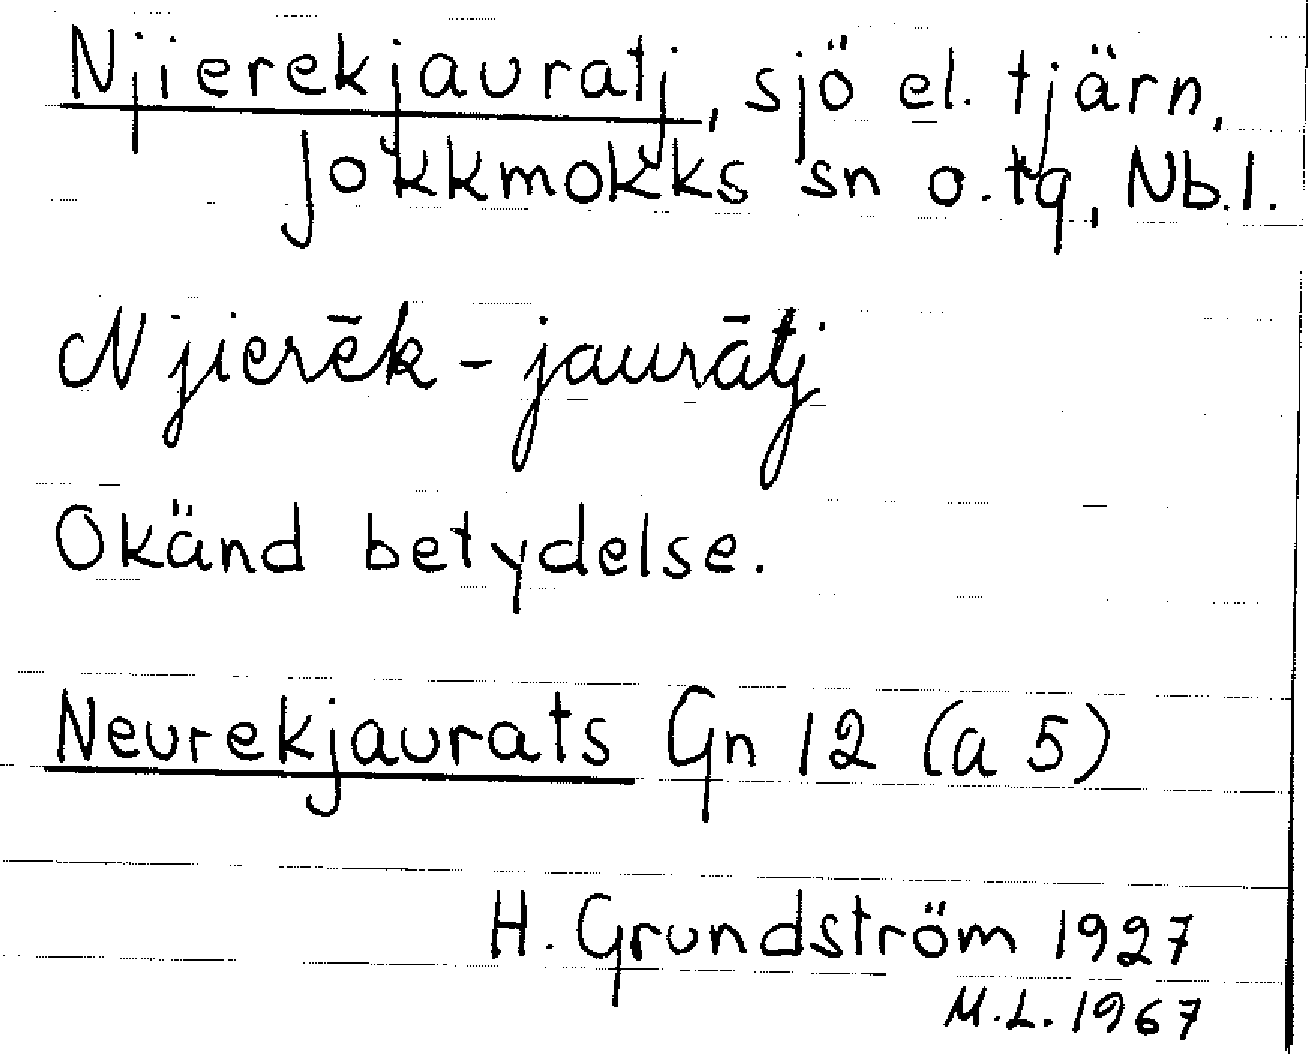 Njierekjauratj, sjö el. tjärn,
Jokkmokks sn o. tg, Nb. l.
Njierēk-jaurātj
Okänd betydelse.
Neurekjaurats Gn 12 (a 5)
H. Grundström 1927
M.L. 1967